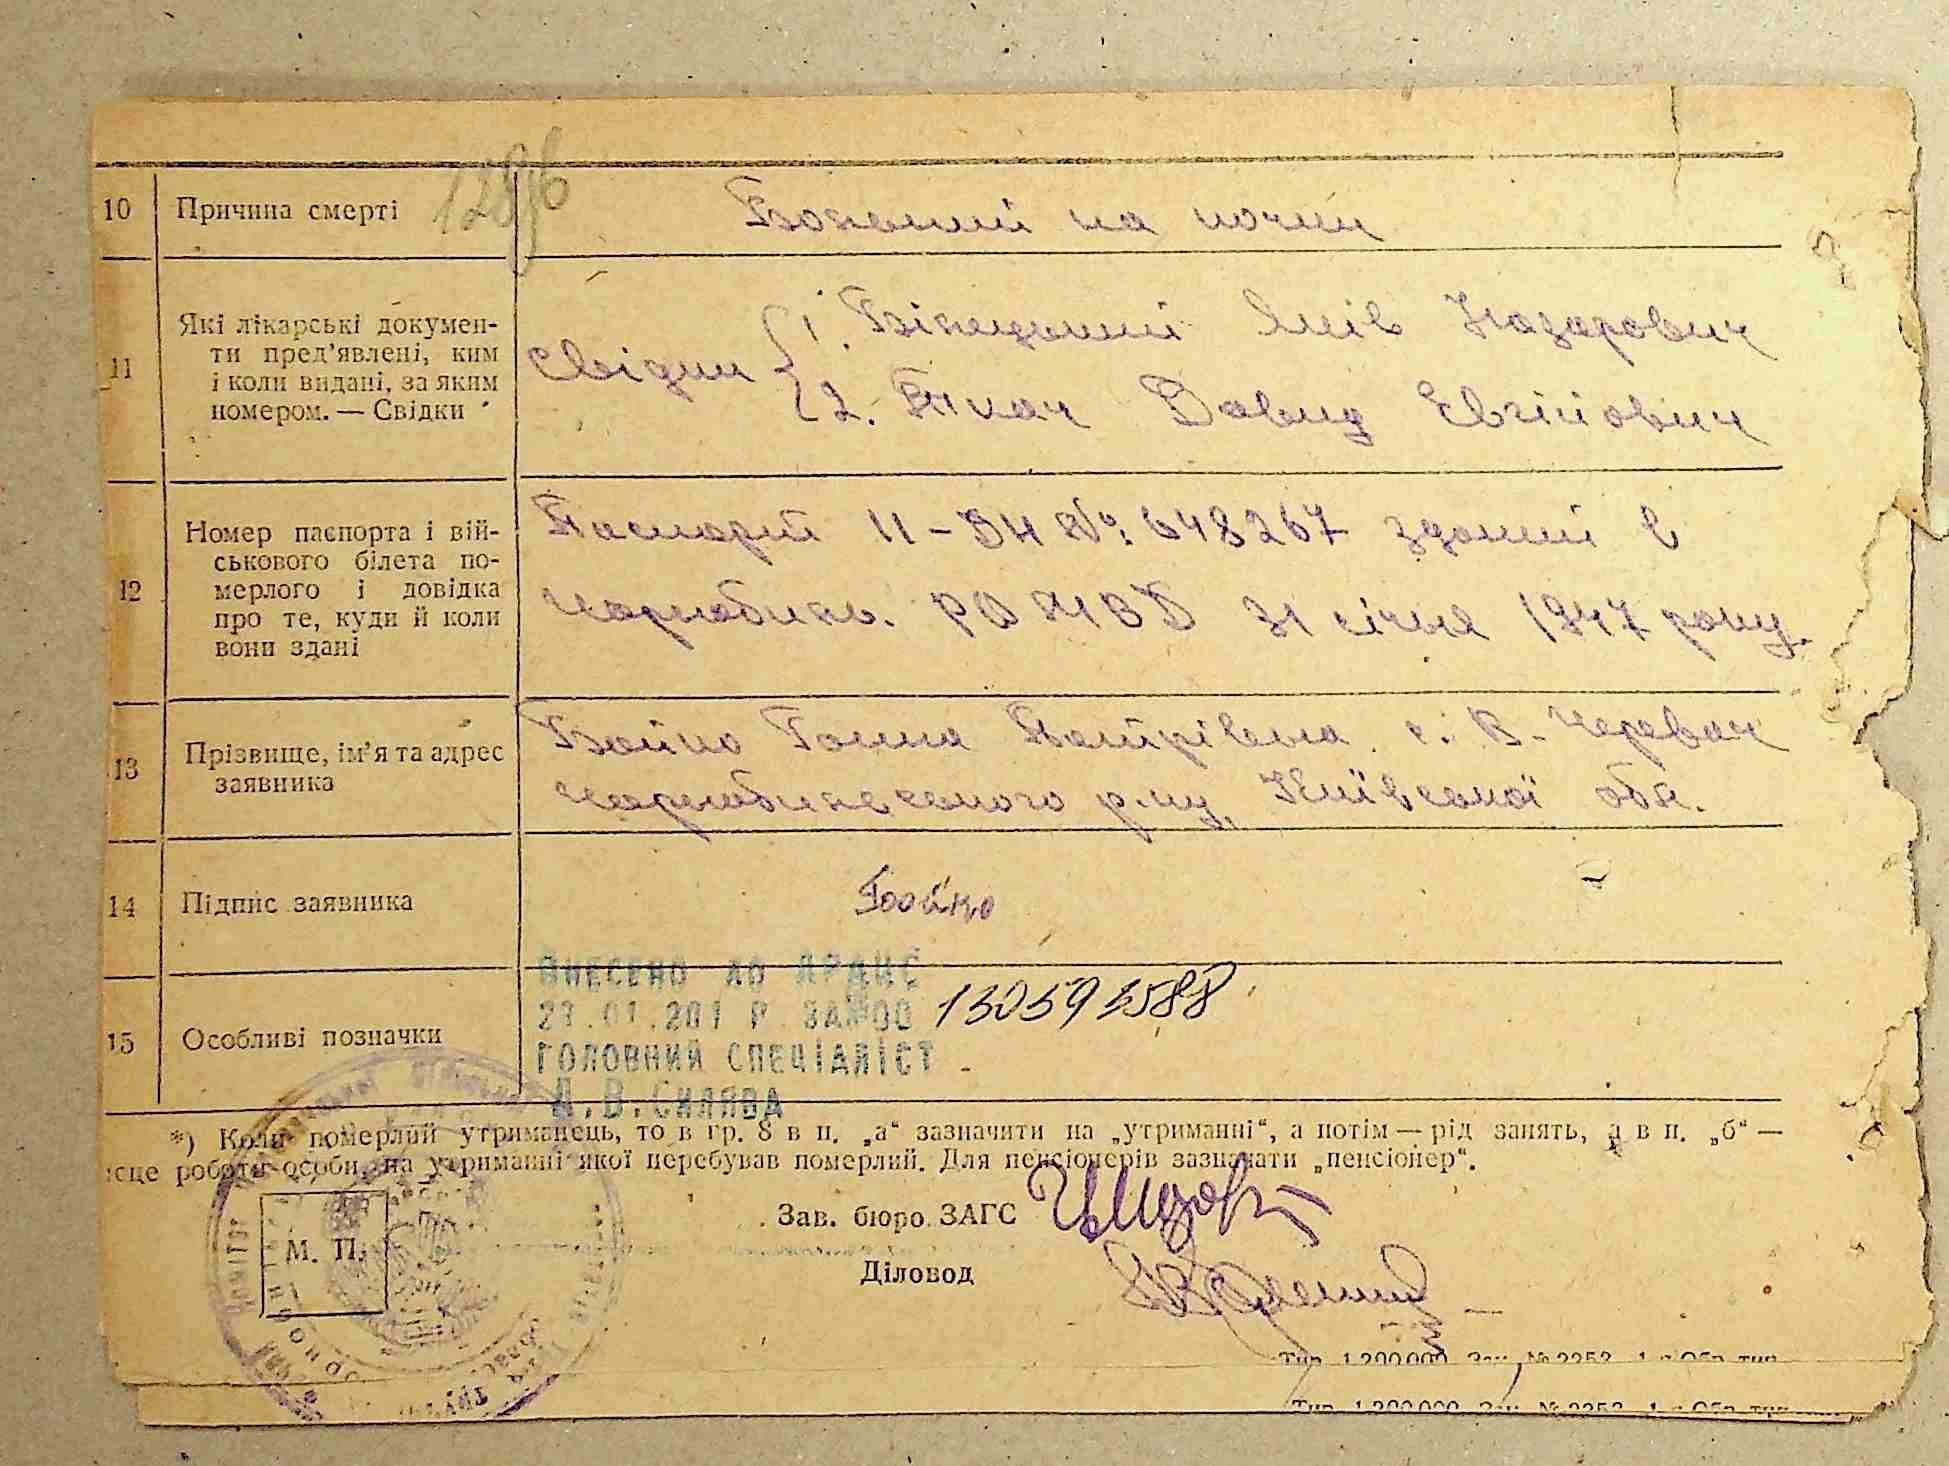 1286
10 Причина смерті Больший на почки
11 Які лікарські докумен-
ти пред'явлені, ким
і коли видані, за яким
номером. — Свідки
Свідки 1. Білецький Яків Назарович
2. Ткач Давид Евгійович
12 Номер паспорта і вій-
ськового білета по-
мерлого і довідка
про те, куди й коли
вони здані
Паспорт II-ДН № 648267 зданий в
Чорнобильс. РО МВД 31 січня 1947 року.
13 Прізвище, ім'я та адрес
заявника
Бойко Ганна Петрівна с. В. Черевач
Чорнобильського р-ну, Київської обл.
14 Підпис заявника Бойко
ВНЕСЕНО ДО ДРАЦС
23.01.201 Р. ЗА №00 130593588
15 Особливі позначки
ГОЛОВНИЙ СПЕЦІАЛІСТ
Л.В.Силява
*) Коли померлий утриманець, то в гр. 8 в п. „а“ зазначити на „утриманні“, а потім — рід занять, а в п. „б“ —
ісце роботи особи, на утриманні якої перебував померлий. Для пенсіонерів зазначати „пенсіонер“.
Зав. бюро ЗАГС
М. П.
Діловод
Тир. 1.200.000. Зак. № 2252. 1-а Обр. тип.
Тир. 1.200.000. Зак. № 2252. 1-а Обр. тип.